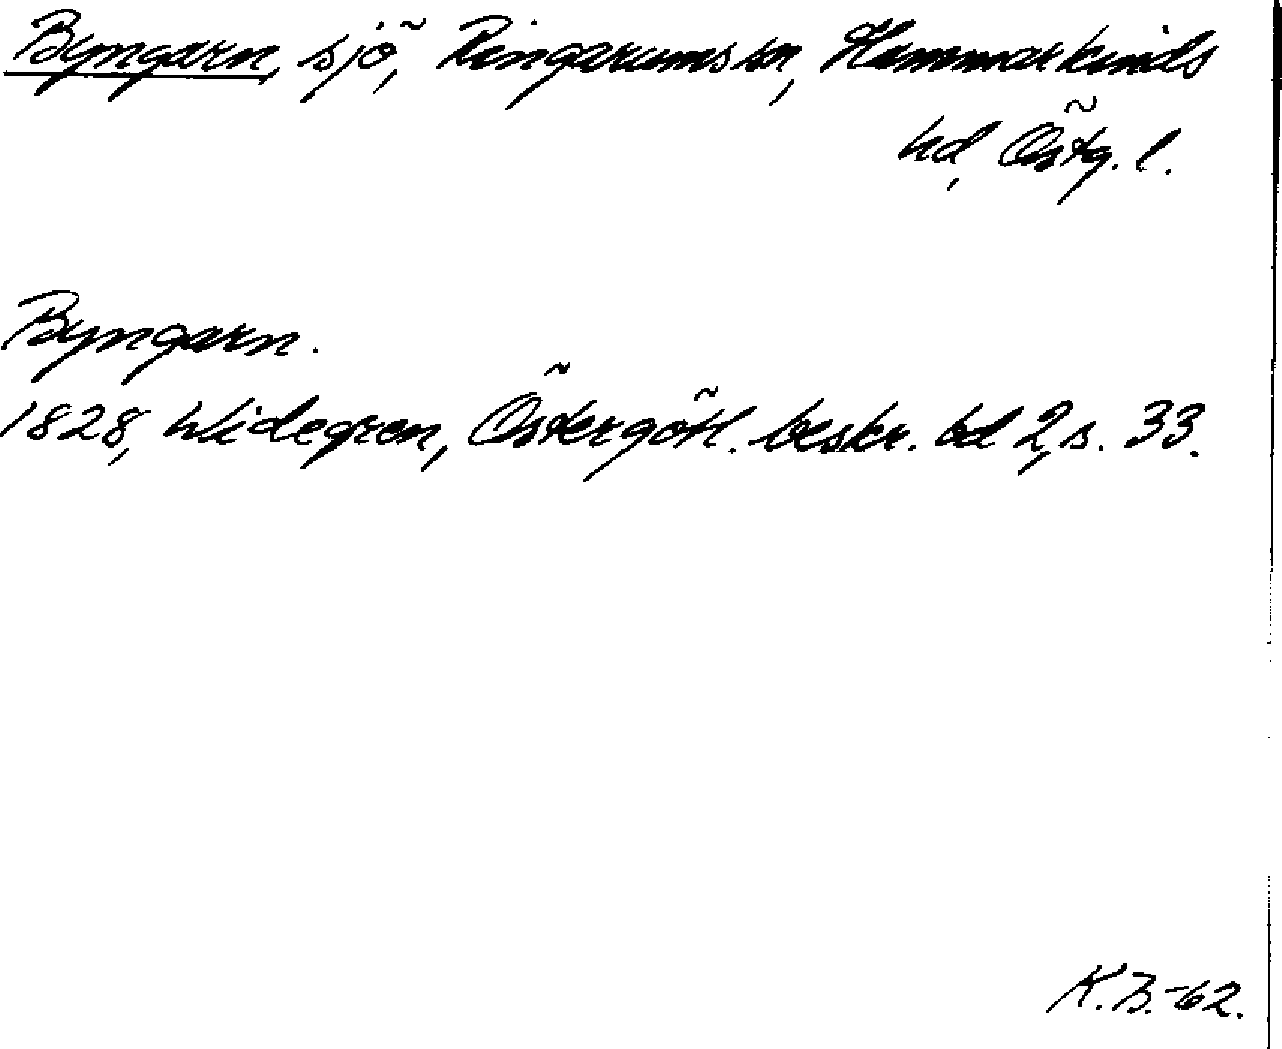 Byngarn, sjö, Ringarums sn, Hammarkinds
hd, Östg. l.
Byngarn.
1828, Widegren, Östergötl. beskr. bd 2, s. 33.
K.B.-62.